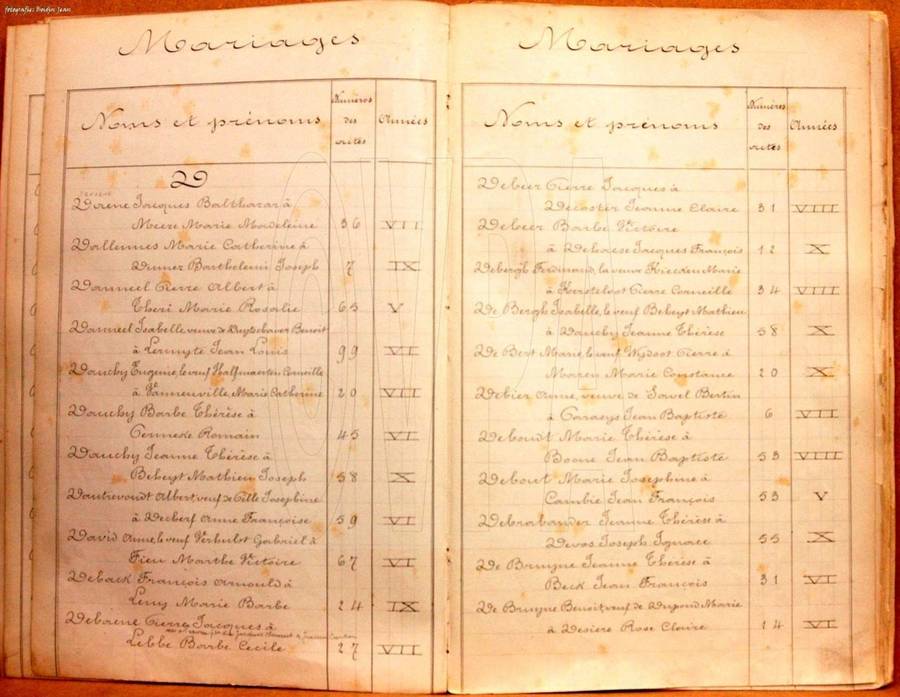 fotografie: Boidin Jean
Mariages
Noms et prénoms
Numéros des actes
Années
D
Daene Jacques Balthazar à
Meere Marie Madeleine 36 VII
Dallennes Marie Catherine à
Barthelemi Joseph 7 IX
Danneel Pierre Albert à
Théri Marie Rosalie 65 V
Danneel Isabelle, veuve de Benoit
à Lermyte Jean Louis 99 VI
Dauchy Eugenie, le veuf Halfmaerten Corneille
à Vanneuville Marie Catherine 20 VII
Dauchy Barbe Thérèse à
Romain 45 VI
Dauchy Jeanne Thérèse à
Beheyt Mathieu Joseph 58 X
Dautrevondt Albert, veuf de Cille Josephine
à Decherf Anne Françoise 59 VI
David Anne, le veuf Verhulst Gabriel à
Fieu Marthe Victoire 67 VI
Deback François Arnould à
Leny Marie Barbe 24 IX
Debaene Pierre Jacques à
Lebbe Barbe Cecile 27 VII
Mariages
Noms et prénoms
Numéros des actes
Années
Debeer Pierre Jacques à
Decoster Jeanne Claire 31 VIII
Debeer Barbe Victoire
à Jacques François 12 X
Debergh Ferdinand, la veuve Marie
à Kersteloot Pierre Corneille 34 VIII
De Bergh Isabelle, le veuf Beheyt Mathieu
à Dauchy Jeanne Thérèse 58 X
De Bert Marie, le veuf Wydoot Pierre à
Marie Constance 20 X
Debier Anne, veuve de Savel Bertin
à Jean Baptiste 6 VII
Deboudt Marie Thérèse à
Boone Jean Baptiste 53 VIIII
Debout Marie Josephine à
Cambie Jean François 53 V
Debrabander Jeanne Thérèse à
Devos Joseph Ignace 55 X
De Bruyne Jeanne Thérèse à
Beck Jean François 31 VI
De Bruyne Benoit, veuf de Dupond Marie
à Desiere Rose Claire 14 VI